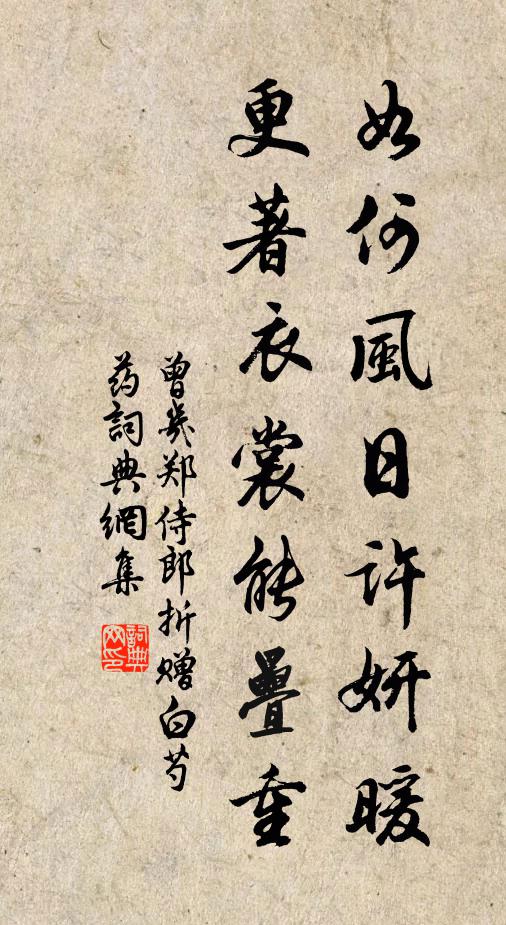 如何風日許妍暖
更著衣裳能疊重
曾幾郑侍郎折赠白芍
药詞典網集
詞典
网印